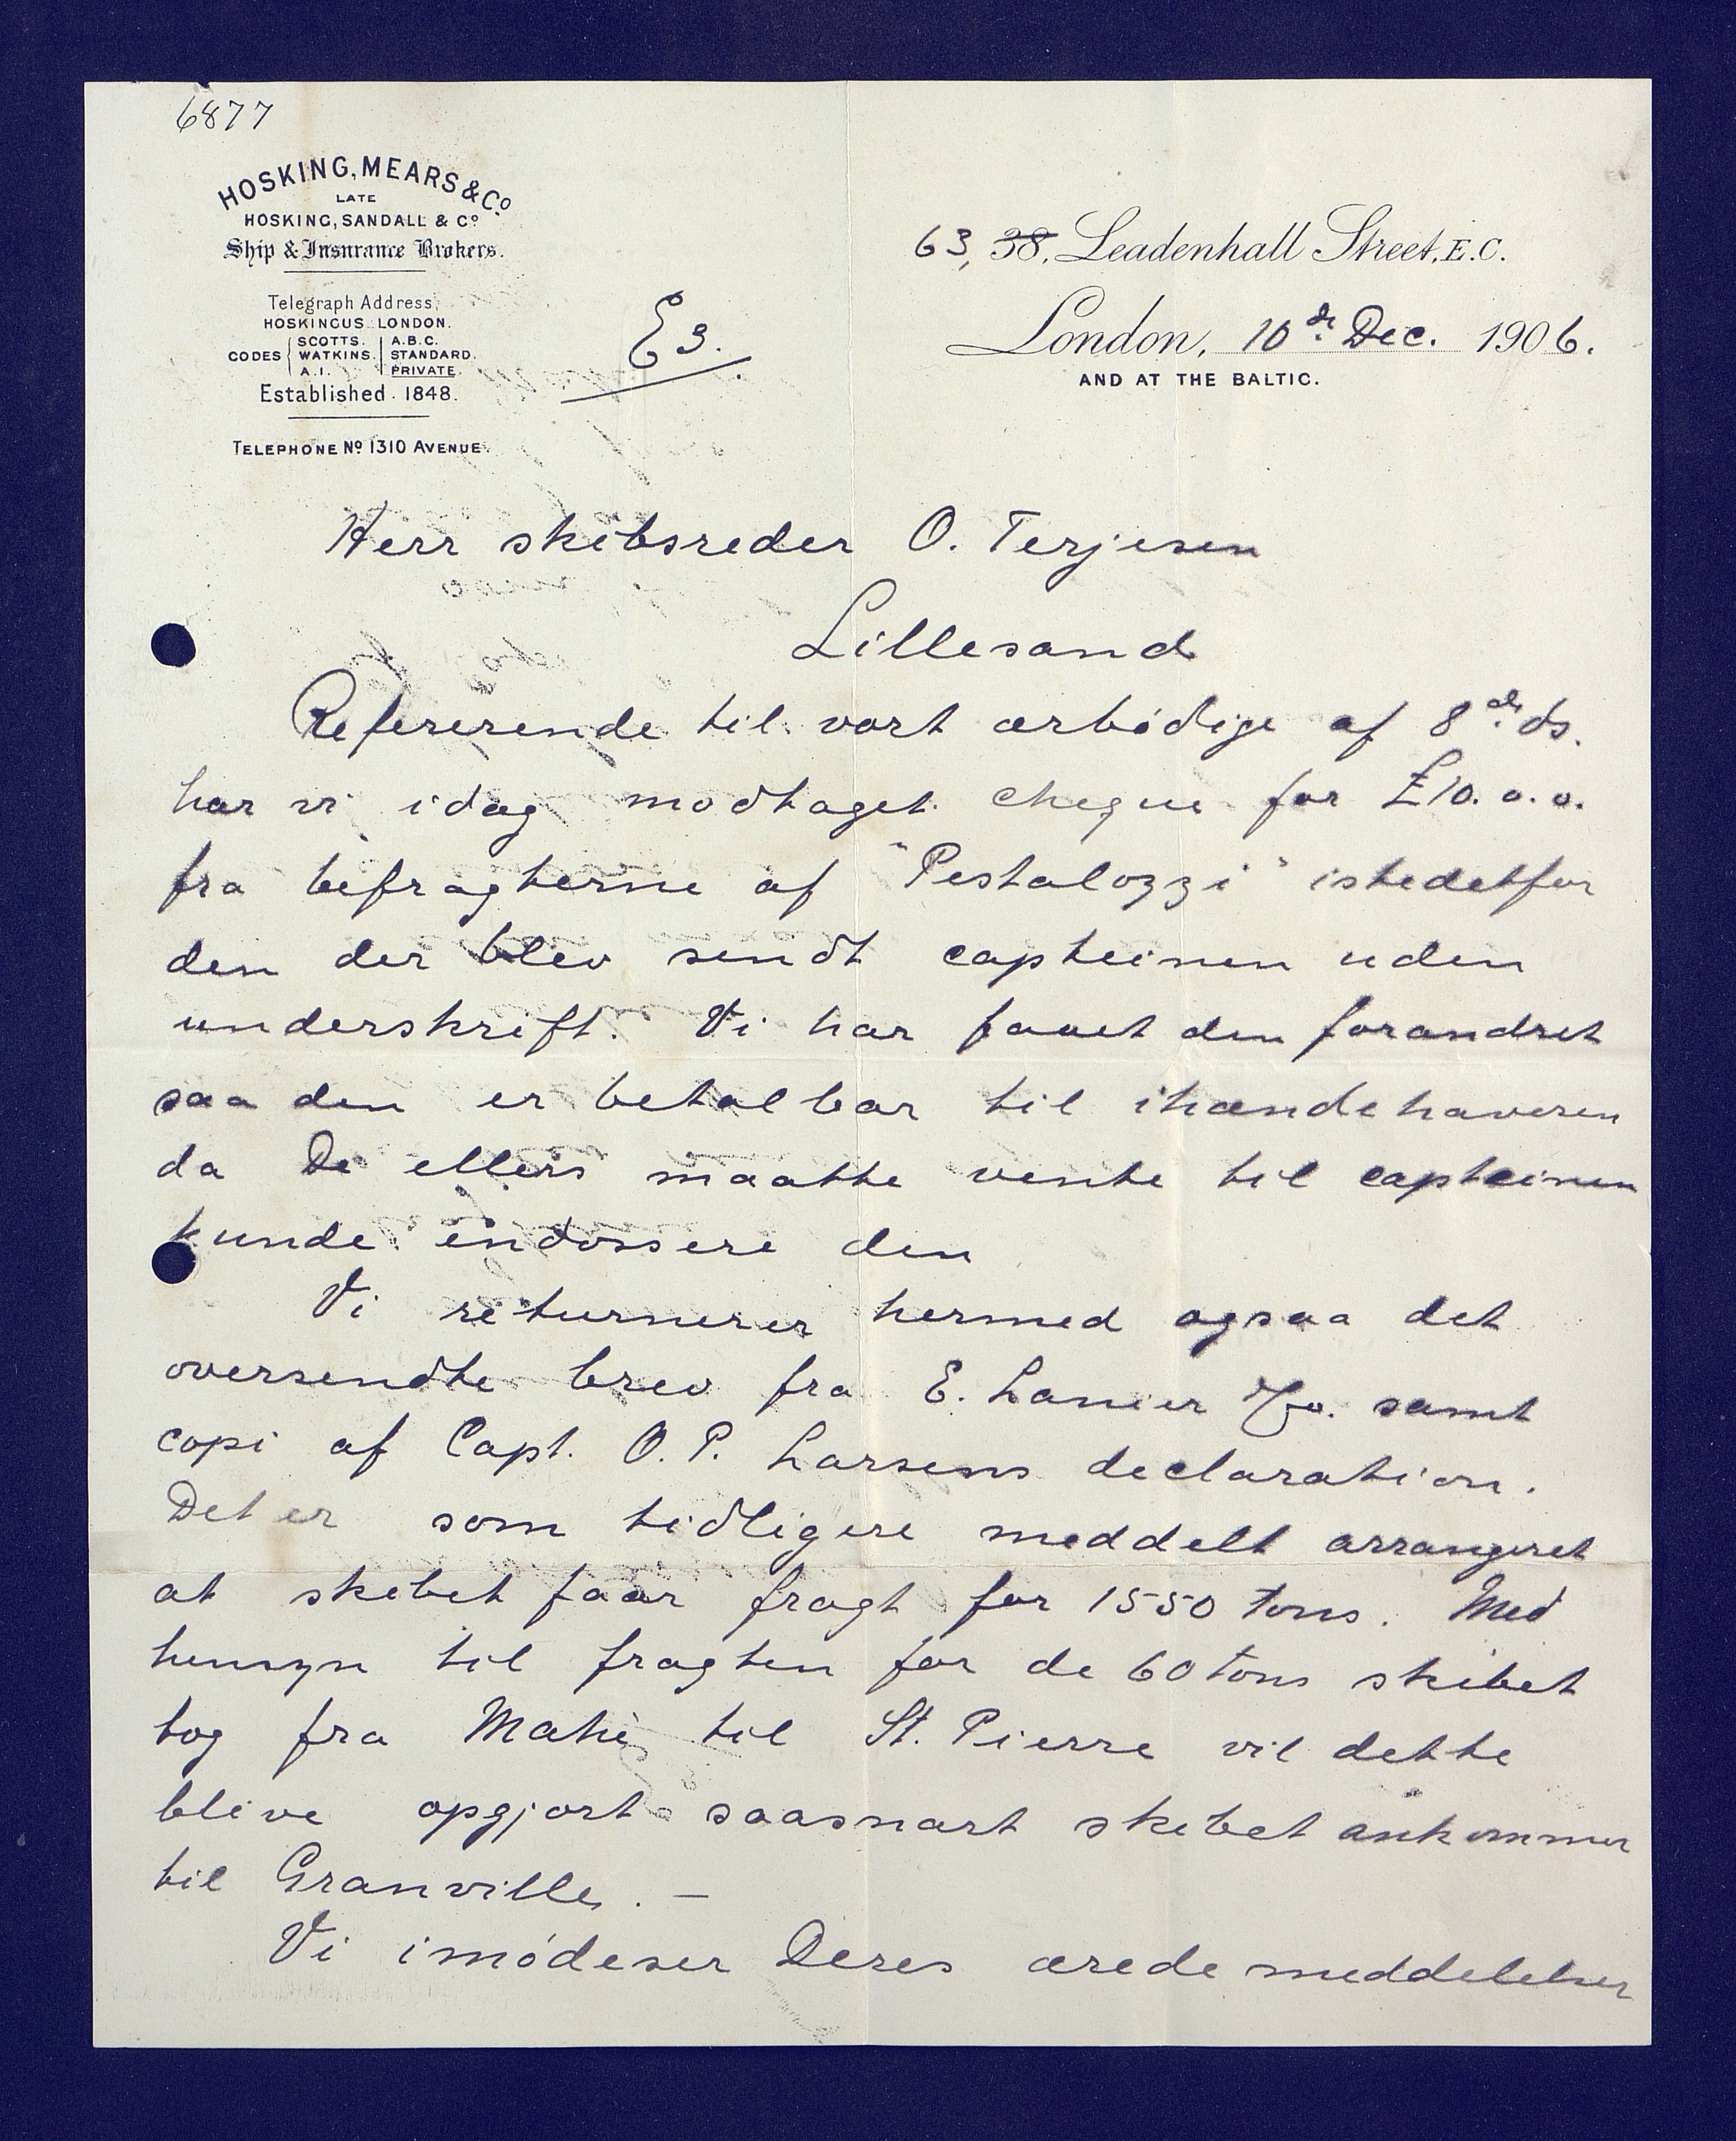 6877
HOSKING, MEARS & Co.
LATE
HOSKING, SANDALL & Co.
Ship & Insurance Brokers.
Telegraph Address,
HOSKINGUS LONDON.
CODES SCOTTS. A.B.C.
WATKINS. STANDARD.
A.I. PRIVATE.
Established 1848.
TELEPHONE No. 1310 AVENUE.
E3.
63, 38, Leadenhall Street, E.C.
London, 10de Dec. 1906.
AND AT THE BALTIC.
Herr skibsreder O. Terjesen
Lillesand
Refererende til vort ærbödige af 8de ds.
har vi idag modtaget cheque for £10.0.0.
fra befragterne af "Pestalozzi" istedetfor
den der blev sendt capteinen uden
underskrift. Vi har faaet den forandret
saa den er betalbar til ihændehaveren
da De ellers maatte vente til capteinen
kunde endossere den
Vi returnerer hermed ogsaa det
oversendte brev fra E. Lanier & Co. samt
copi af Capt. O. P. Larsens declaration.
Det er som tidligere meddelt arrangeret
at skibet faar fragt for 1550 tons. Med
hensyn til fragten for de 60 tons skibet
tog fra Mahé til St. Pierre vil dette
blive opgjort saasnart skibet ankommer
til Granville. —
Vi imödeser Deres ærede meddelelser